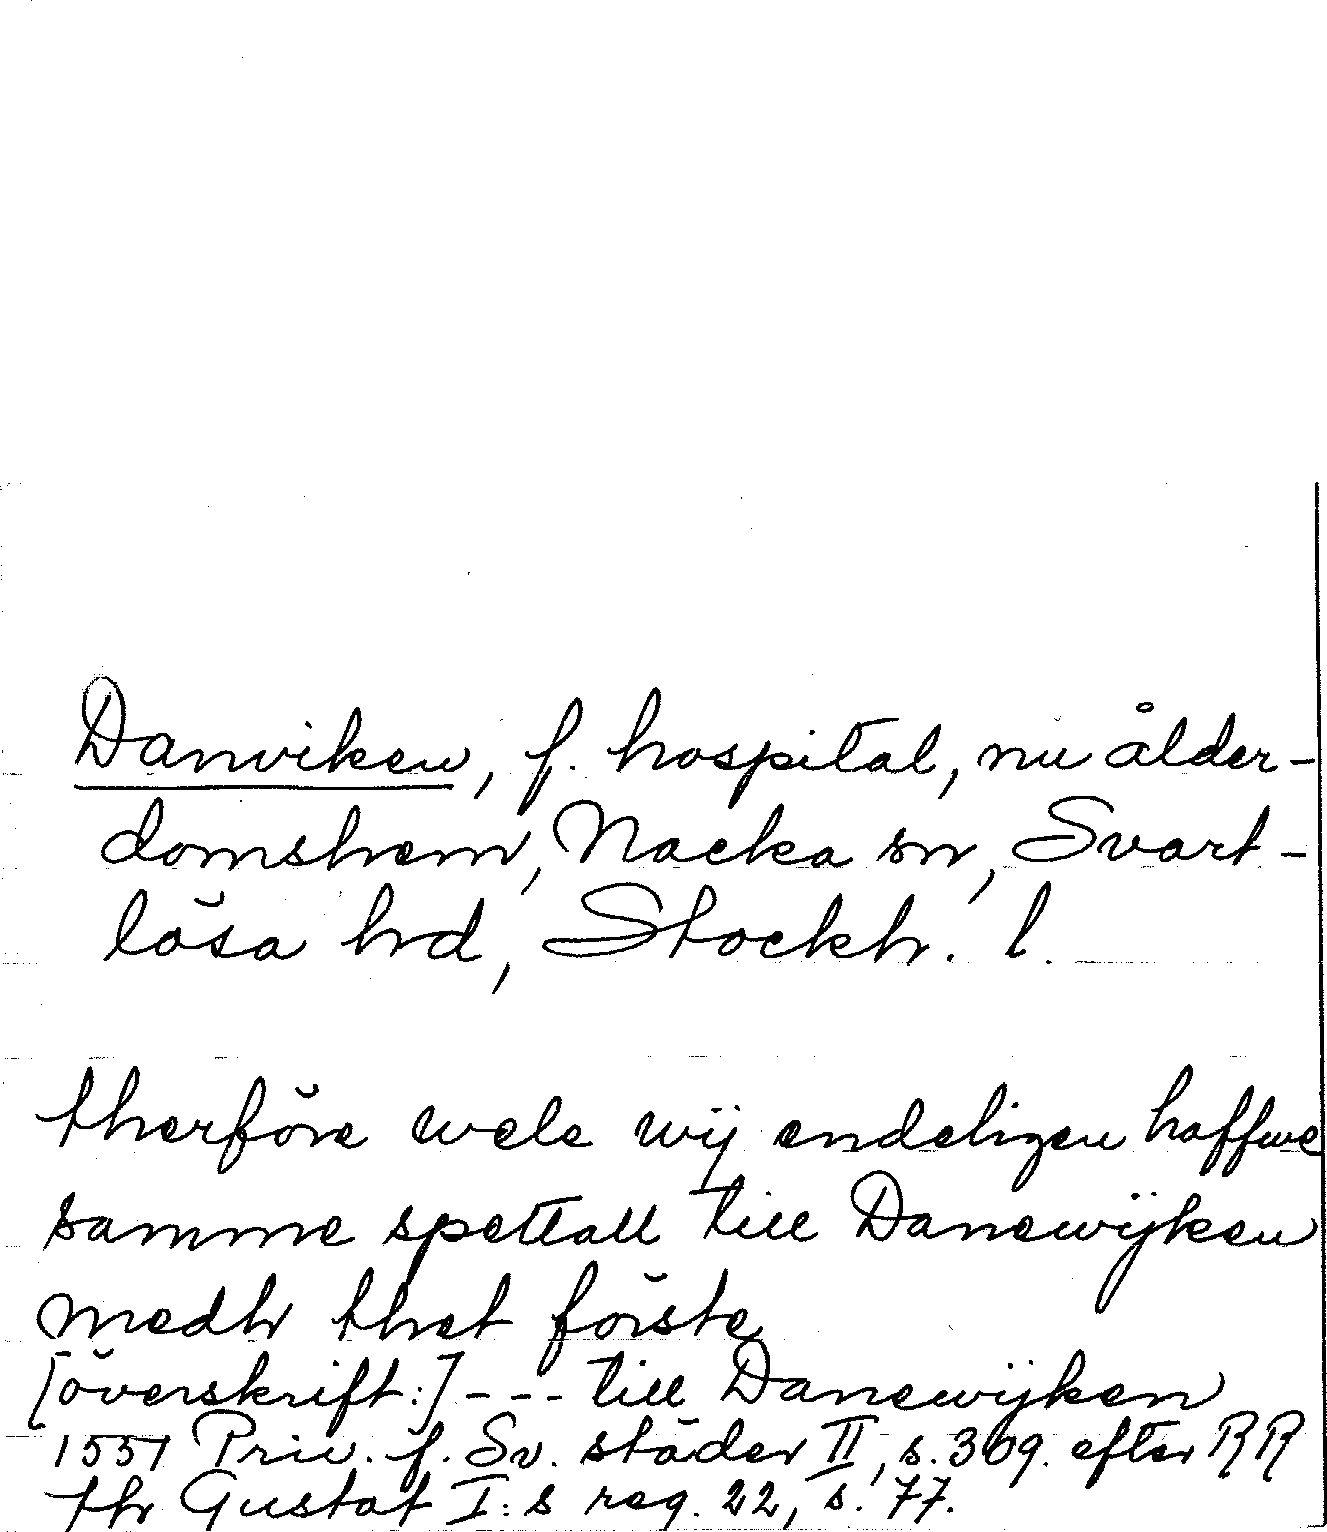 Danviken, f. hospital, nu ålder-
domshem, Nacka sn, Svart-
lösa hd, Stockh. l.
therföre wele wij endeligen haffwe
samme spettall till Danewijken
medh thet förste
[överskrift:] - - - till Danewijken
1551 Priv. f. Sv. städer II, s. 309. efter RR
tr Gustaf I:s reg. 22, s. 77.